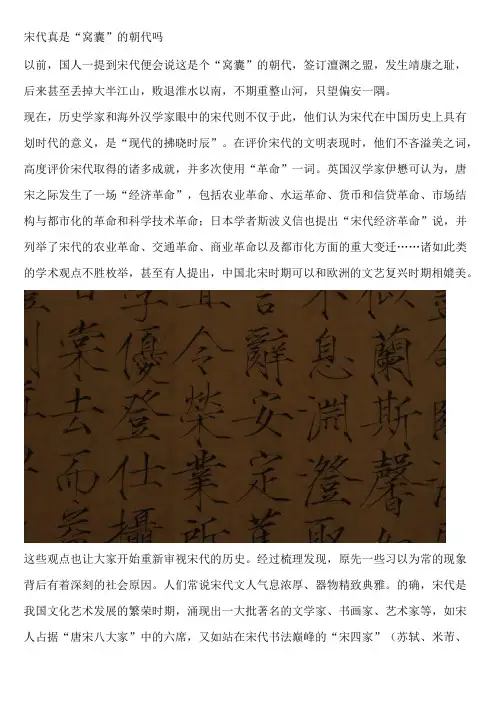 宋代真是“窝囊”的朝代吗
以前，国人一提到宋代便会说这是个“窝囊”的朝代，签订澶渊之盟，发生靖康之耻，
后来甚至丢掉大半江山，败退淮水以南，不期重整山河，只望偏安一隅。
现在，历史学家和海外汉学家眼中的宋代则不仅于此，他们认为宋代在中国历史上具有
划时代的意义，是“现代的拂晓时辰”。在评价宋代的文明表现时，他们不吝溢美之词，
高度评价宋代取得的诸多成就，并多次使用“革命”一词。英国汉学家伊懋可认为，唐
宋之际发生了一场“经济革命”，包括农业革命、水运革命、货币和信贷革命、市场结
构与都市化的革命和科学技术革命；日本学者斯波义信也提出“宋代经济革命”说，并
列举了宋代的农业革命、交通革命、商业革命以及都市化方面的重大变迁……诸如此类
的学术观点不胜枚举，甚至有人提出，中国北宋时期可以和欧洲的文艺复兴时期相媲美。
似蘭斯馨如
不息淵澄取
言辭安定篤
宜令榮業所
學優登仕攝
棠去而益
这些观点也让大家开始重新审视宋代的历史。经过梳理发现，原先一些习以为常的现象
背后有着深刻的社会原因。人们常说宋代文人气息浓厚、器物精致典雅。的确，宋代是
我国文化艺术发展的繁荣时期，涌现出一大批著名的文学家、书画家、艺术家等，如宋
人占据“唐宋八大家”中的六席，又如站在宋代书法巅峰的“宋四家”（苏轼、米芾、